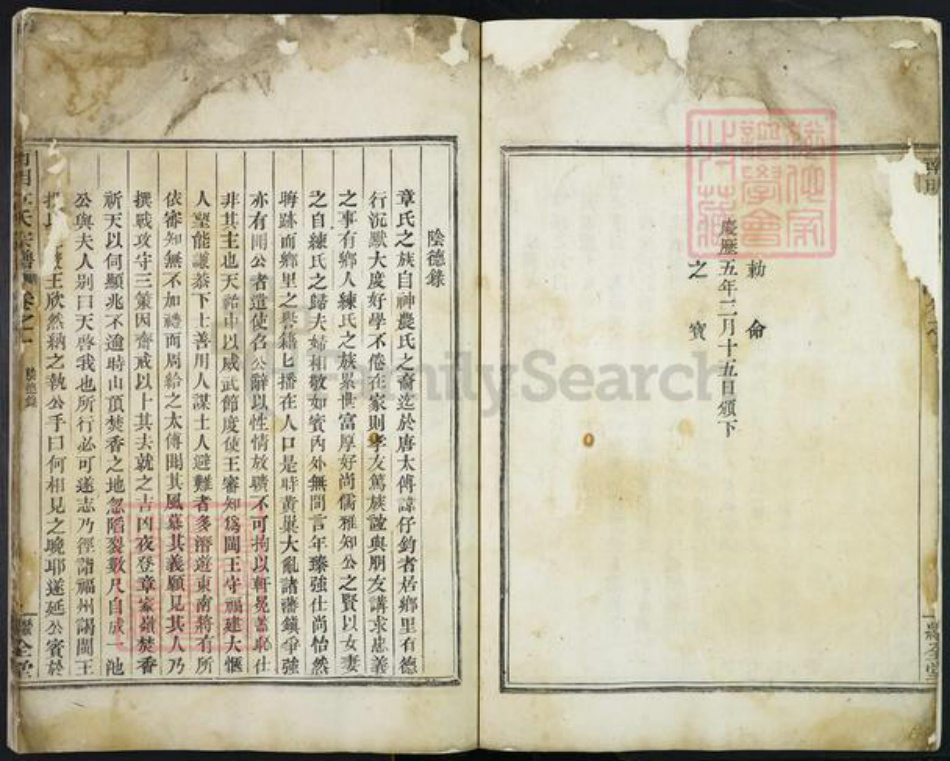 勅命
慶歷五年三月十五日頒下
之寶
全堂
陰德錄
章氏之族自神農氏之裔迄於唐太傅諱仔鈞者居鄉里有德
行沉默大度好學不倦在家則孝友篤族誼與朋友講求忠義
之事有鄉人練氏之族累世富厚好尚儒雅知公之賢以女妻
之自練氏之歸夫婦相敬如賓內外無間言年臻強仕尚怡然
晦跡而鄉里之譽籍匕播在人口是時黃巢大亂諸藩鎮爭強
亦有聞公者遣使名公辭以性情放曠不可拘以軒冕蓋恥仕
非其主也天祐中以威武節度使王審知為閩王守福建大愜
人望能謙恭下士善用人謀士人避難者多潛遊東南將有所
依審知無不加禮而周給之太傅聞其風慕其義願見其人乃
撰戰攻守三策因齋戒以卜其去就之吉凶夜登章家嶺焚香
祈天以伺顯兆不逾時山頂焚香之地忽陷裂數尺自成一池
公與夫人別曰天啓我也所行必可遂志乃徑詣福州謁閩王
王欣然納之執公手曰何相見之晚耶遂延公賓於
氏宗譜 卷之一 陰德錄 全堂
FamilySearch